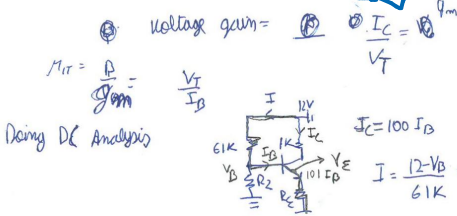 voltage gain =
I_C / V_T = g_m
r_π = β / g_m = V_T / I_B
Doing DC Analysis
I
12V
I_C
61K
1K
I_B
V_B
V_E
101 I_B
R_2
R_E
I_C = 100 I_B
I = 12-V_B / 61K